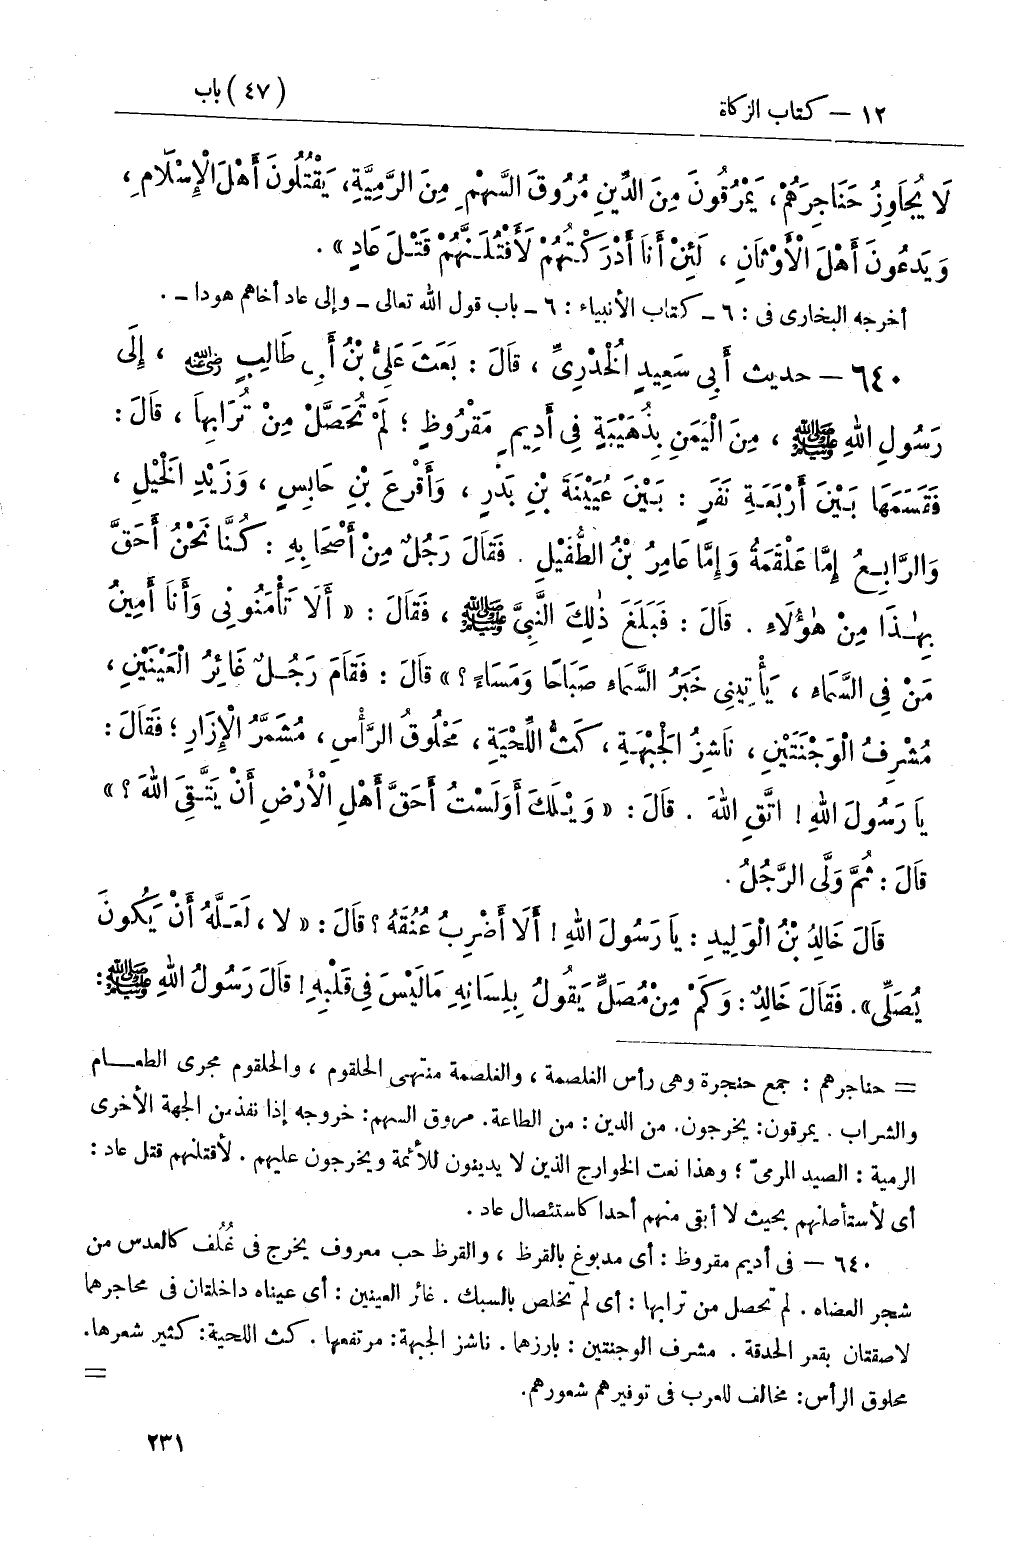 ١٢ – كتاب الزكاة
(٤٧) باب
لَا يُجَاوِزُ حَنَاجِرَهُمْ، يَمْرُقُونَ مِنَ الدِّينِ مُرُوقَ السَّهْمِ مِنَ الرَّمِيَّةِ، يَقْتُلُونَ أَهْلَ الْإِسْلَامِ،
وَيَدعُونَ أَهْلَ الْأَوْثَانِ، لَئِنْ أَنَا أَدْرَكْتُهُمْ لَأَقْتُلَنَّهُمْ قَتْلَ عَادٍ».
أخرجه البخارى فى: ٦٠ – كتاب الأنبياء: ٦ – باب قول الله تعالى – وإلى عاد أخاهم هودا –.
٦٤٠ – حديث أَبِي سَعِيدٍ الْخُدْرِيِّ، قَالَ: بَعَثَ عَلِيُّ بْنُ أَبِي طَالِبٍ رضي الله عنه، إِلَى
رَسُولِ اللهِ ﷺ، مِنَ الْيَمَنِ بِذُهَيْبَةٍ فِى أَدِيمٍ مَقْرُوظٍ؛ لَمْ تُحَصَّلْ مِنْ تُرَابِهَا، قَالَ:
فَقَسَمَهَا بَيْنَ أَرْبَعَةِ نَفَرٍ: بَيْنَ عُيَيْنَةَ بْنِ بَدْرٍ، وَأَقْرَعَ بْنِ حَابِسٍ، وَزَيْدِ الْخَيْلِ،
وَالرَّابِعُ إِمَّا عَلْقَمَةُ وَإِمَّا عَامِرُ بْنُ الطُّفَيْلِ. فَقَالَ رَجُلٌ مِنْ أَصْحَابِهِ: كُنَّا نَحْنُ أَحَقَّ
بِهٰذَا مِنْ هٰؤُلَاءِ. قَالَ: فَبَلَغَ ذٰلِكَ النَّبِيَّ ﷺ، فَقَالَ: «أَلَا تَأْمَنُونِي وَأَنَا أَمِينُ
مَنْ فِي السَّمَاءِ، يَأْتِينِى خَبَرُ السَّمَاءِ صَبَاحًا وَمَسَاءً؟» قَالَ: فَقَامَ رَجُلٌ غَائِرُ الْعَيْنَيْنِ،
مُشْرِفُ الْوَجْنَتَيْنِ، نَاشِزُ الْجَبْهَةِ، كَثُّ اللِّحْيَةِ، مَحْلُوقُ الرَّأْسِ، مُشَمَّرُ الْإِزَارِ؛ فَقَالَ:
يَا رَسُولَ اللهِ! اتَّقِ اللهَ. قَالَ: «وَيْلَكَ أَوَلَسْتُ أَحَقَّ أَهْلِ الْأَرْضِ أَنْ يَتَّقِيَ اللهَ؟»
قَالَ: ثُمَّ وَلَّى الرَّجُلُ.
قَالَ خَالِدُ بْنُ الْوَلِيدِ: يَا رَسُولَ اللهِ! أَلَا أَضْرِبُ عُنُقَهُ؟ قَالَ: «لا، لَعَلَّهُ أَنْ يَكُونَ
يُصَلِّى». فَقَالَ خَالِدٌ: وَكَمْ مِنْ مُصَلٍّ يَقُولُ بِلِسَانِهِ مَا لَيْسَ فِى قَلْبِهِ! قَالَ رَسُولُ اللهِ ﷺ:
= حناجرهم: جمع حنجرة وهى رأس الغلصمة، والغلصمة منتهى الحلقوم، والحلقوم مجرى الطعام
والشراب. يمرقون: يخرجون. من الدين: من الطاعة. مروق السهم: خروجه إذا نفذ من الجهة الأخرى
الرمية: الصيد المرمىّ؛ وهذا نعت الخوارج الذين لا يدينون للأئمة ويخرجون عليهم. لأقتلنهم قتل عاد:
أى لأستأصلنهم بحيث لا أبقى منهم أحدا كاستئصال عاد.
٦٤٠ – فى أديم مقروظ: أى مدبوغ بالقرظ، والقرظ حب معروف يخرج فى غُلُف كالعدس من
شجر العضاه. لم تحصل من ترابها: أى لم تخلص بالسبك. غائر العينين: أى عيناه داخلقان فى محاجرهما
لاصقتان بقعر الحدقة. مشرف الوجنتين: بارزهما. ناشز الجبهة: مرتفعها. كث اللحية: كثير شعرها.
محلوق الرأس: مخالف للعرب فى توفيرهم شعورهم.
=
٢٣١